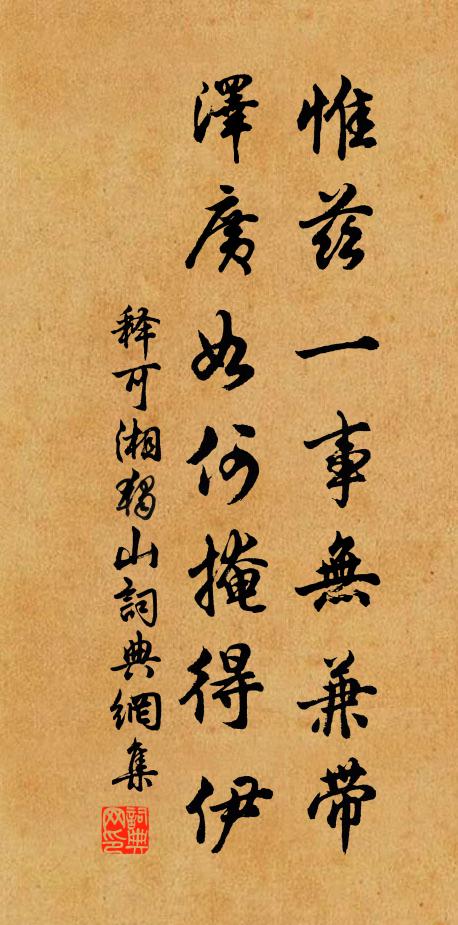 惟茲一事無兼帶
澤廣如何掩得伊
释可湘獨山詞典網集
詞典网印